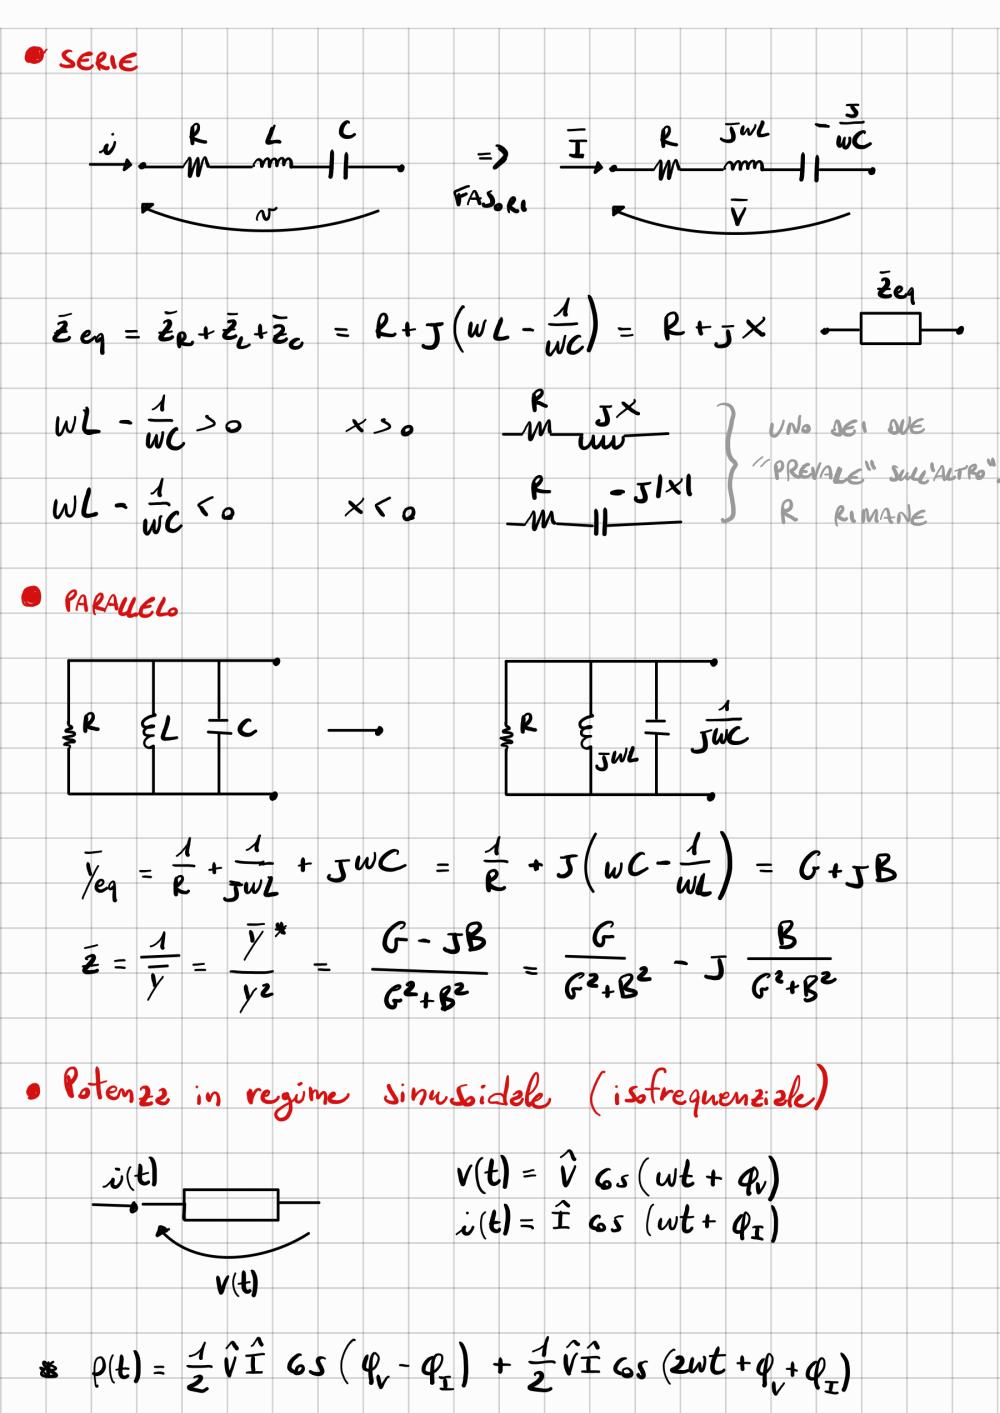 • SERIE
i R L C => FASORI Ī R JωL -J/ωC
v V̄
Z̄eq
Z̄eq = Z̄R + Z̄L + Z̄C = R + J(ωL - 1/ωC) = R + JX
ωL - 1/ωC > 0 x > 0 R JX
ωL - 1/ωC < 0 x < 0 R -J|X|
UNO DEI DUE
"PREVALE" SULL'ALTRO".
R RIMANE
• PARALLELO
R L C R JωL 1/JωC
Ȳeq = 1/R + 1/JωL + JωC = 1/R + J(ωC - 1/ωL) = G + JB
Z̄ = 1/Ȳ = Ȳ*/Y² = (G - JB)/(G² + B²) = G/(G² + B²) - J B/(G² + B²)
• Potenza in regime sinusoidale (isofrequenziale)
i(t)
v(t)
v(t) = V̂ cos(ωt + φV)
i(t) = Î cos(ωt + φI)
* p(t) = 1/2 V̂Î cos(φV - φI) + 1/2 V̂Î cos(2ωt + φV + φI)